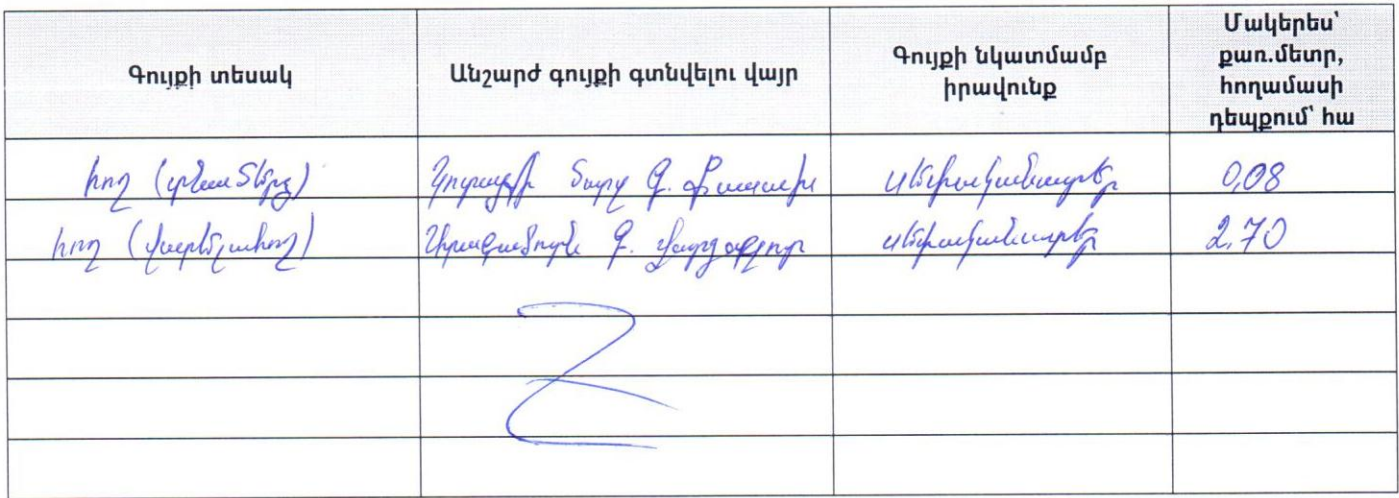 Գույքի տեսակ
Անշարժ գույքի գտնվելու վայր
Գույքի նկատմամբ
իրավունք
Մակերես՝
քառ.մետր,
հողամասի
դեպքում՝ հա
հող (տնամերձ)
Կոտայքի մարզ գ. Քասախ
սեփականատեր
0,08
հող (վարելահող)
գ.
սեփականատեր
2,70